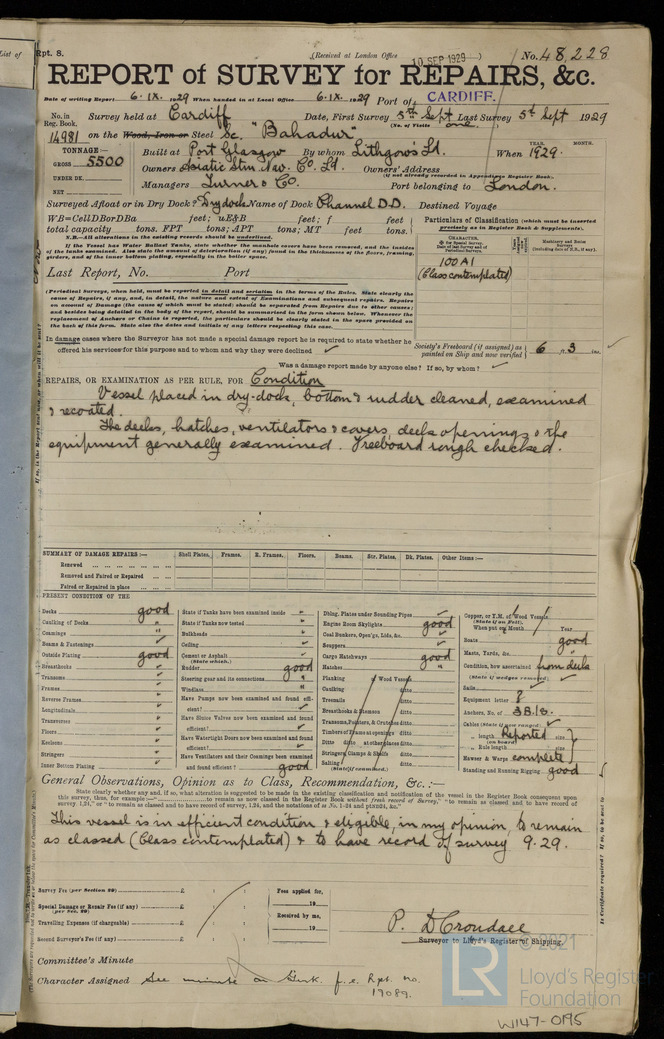 Rpt. 8.
(Received at London Office 10 SEP 1929)
No. 48,228
REPORT of SURVEY for REPAIRS, &c.
Date of writing Report 6.IX.1929 When handed in at Local Office 6.IX.1929 Port of CARDIFF.
No. in Reg. Book. Survey held at Cardiff Date, First Survey 5th Sept Last Survey 5th Sept 1929
(No. of Visits one)
14981 on the Wood, Iron or Steel Sc. "Bahadur"
TONNAGE:—
GROSS 5500
UNDER DK.
NET
Built at Port Glasgow By whom Lithgows Ld. When 1929.
YEAR. MONTH.
Owners Asiatic Stm Nav. Co. Ld. Owners' Address
(if not already recorded in Appendix to Register Book.)
Managers Turner & Co. Port belonging to London.
Surveyed Afloat or in Dry Dock? Drydock Name of Dock Channel D.D. Destined Voyage
WB=CellDBorDBa feet; uE&B feet; f feet
total capacity tons. FPT tons; APT tons; MT feet tons.
N.B.—All alterations in the existing records should be underlined.
If the Vessel has Water Ballast Tanks, state whether the manhole covers have been removed, and the insides of the tanks examined. Also state the amount of deterioration (if any) found in the thicknesses of the floors, framing, and of the inner bottom plating, especially in the boiler space.
Particulars of Classification (which must be inserted precisely as in Register Book & Supplements).
CHARACTER.
Machinery and Boiler Surveys
100A1
(Class contemplated)
Last Report, No. Port
(Periodical Surveys, when held, must be reported in detail and seriatim in the terms of the Rules. State clearly the cause of Repairs, if any, and, in detail, the nature and extent of Examinations and subsequent repairs. Repairs on account of Damage (the cause of which must be stated) should be separated from Repairs due to other causes; and besides being detailed in the body of the report, should be summarized in the form shown below. Whenever the replacement of Anchors or Chains is reported, the particulars should be clearly stated in the space provided on the back of this form. State also the dates and initials of any letters respecting this case.)
In damage cases where the Surveyor has not made a special damage report he is required to state whether he offered his services for this purpose and to whom and why they were declined
Society's Freeboard (if assigned) as painted on Ship and now verified 6 .. 3
Was a damage report made by anyone else? If so, by whom?
REPAIRS, OR EXAMINATION AS PER RULE, FOR Condition
Vessel placed in dry-dock, bottom & rudder cleaned, examined
& recoated.
The decks, hatches, ventilators & covers, deck openings & the
equipment generally examined. Freeboard rough checked.
SUMMARY OF DAMAGE REPAIRS:—
Shell Plates. Frames. R. Frames. Floors. Beams. Str. Plates. Dk. Plates. Other Items:—
Renewed
Removed and Faired or Repaired
Faired or Repaired in place
PRESENT CONDITION OF THE
Decks good
Caulking of Decks "
Coamings "
Beams & Fastenings
Outside Plating good
Breasthooks
Transoms
Frames
Reverse Frames
Longitudinals
Transverses
Floors
Keelsons
Stringers
Inner Bottom Plating
State if Tanks have been examined inside
State if Tanks now tested
Bulkheads
Ceiling
Cement or Asphalt
(State which.)
Rudder good
Steering gear and its connections "
Windlass "
Have Pumps now been examined and found efficient?
Have Sluice Valves now been examined and found efficient?
Have Watertight Doors now been examined and found efficient?
Have Ventilators and their Coamings been examined and found efficient? good
Dblng. Plates under Sounding Pipes
Engine Room Skylights good
Coal Bunkers, Open'gs, Lids, &c.
Scuppers
Cargo Hatchways good
Hatches "
Planking of Wood Vessels
Caulking ditto
Treenails ditto
Breasthooks & Stemson ditto
Transoms, Pointers, & Crutches ditto
Timbers of Frame at openings ditto
Ditto ditto at other places ditto
Stringers, Clamps & Shelfs ditto
Salting ditto
(State if examined.)
Copper, or Y.M. of Wood Vessels
(State if on Felt).
When put on, Month Year
Boats good
Masts, Yards, &c. "
Condition, how ascertained from decks
(State if wedges removed)
Sails
Equipment letter
Anchors, No. of 3B.1S.
Cables (State if now ranged)
" length Reported size
(on board)
" Rule length size
Hawser & Warps complete
Standing and Running Rigging good
General Observations, Opinion as to Class, Recommendation, &c.:—
State clearly whether any, and if so, what alteration is suggested to be made in the existing classification and notification of the vessel in the Register Book consequent upon this survey, thus, for example:— "to remain as now classed in the Register Book without fresh record of Survey," "to remain as classed and to have record of survey, 1,24," or "to remain as classed and to have record of survey, 1,24, and the notations of ss No. 1-24 and ptND24, &c."
This vessel is in efficient condition & eligible, in my opinion, to remain
as classed (Class contemplated) & to have record of survey 9.29.
Survey Fee (per Section 29) £ : :
Special Damage or Repair Fee (if any) £ : :
(per Sec. 29)
Travelling Expenses (if chargeable) £ : :
Second Surveyor's Fee (if any) £ : :
Fees applied for, 19
Received by me, 19
P. D Crondace
Surveyor to Lloyd's Register of Shipping.
Committee's Minute
Character Assigned See minute on Grnk. f.e. Rpt. no.
17089.
© 2021
Lloyd's Register
Foundation
W147-0195